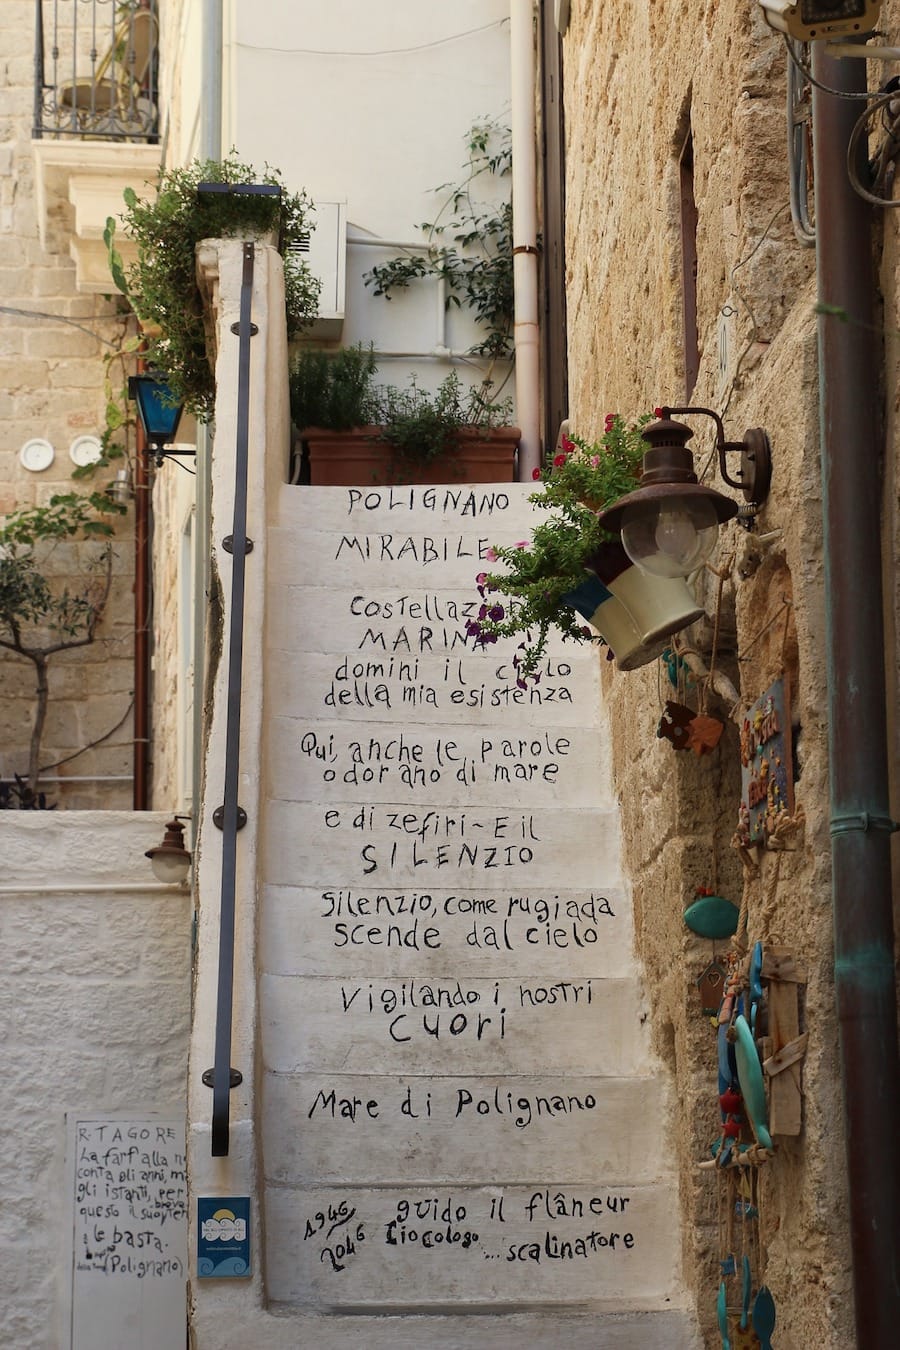 POLIGNANO
MIRABILE
COSTELLAZ
MARINA
domini il cielo
della mia esistenza
Qui, anche le parole
odorano di mare
e di zefiri ~ E il
SILENZIO
Silenzio, come rugiada
scende dal cielo
Vigilando i nostri
cuori
Mare di Polignano
1946
2046
guido il flâneur
Ciocologo
...scalinatore
R. TAGORE
La farfalla
conta gli anni, m
gli istanti, per
questo il suo
le basta.
(Polignano)